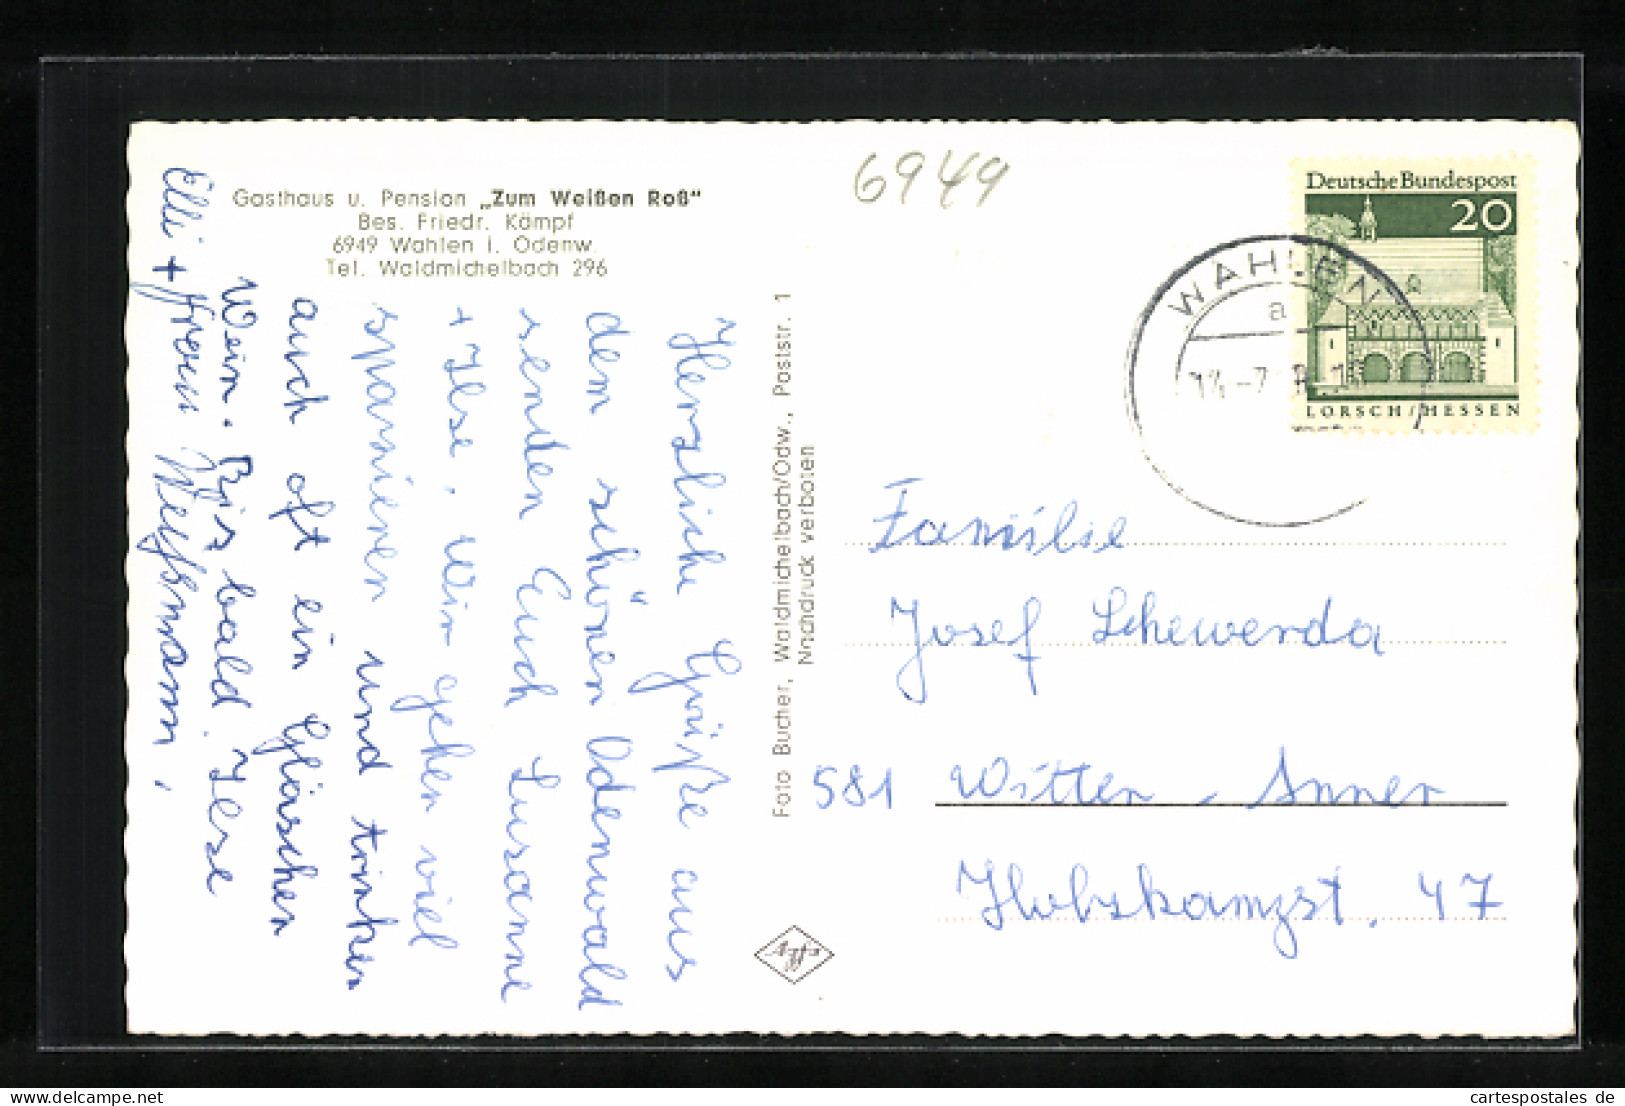 Gasthaus u. Pension „Zum Weißen Roß"
Bes. Friedr. Kämpf
6949 Wahlen i. Odenw.
Tel. Waldmichelbach 296
Herzliche Grüße aus
den schönen Odenwald
senden Euch Susanne
+ Ilse. Wir gehen viel
spazieren und trinken
auch oft ein Gläschen
Wein. Bis bald. Ilse
Elli + Frau
Foto Bucher, Waldmichelbach/Odw., Poststr. 1
Nachdruck verboten
Agfa
6949
Deutsche Bundespost
20
LORSCH/HESSEN
WAHLEN
a
Familie
Josef Schewerda
581 Witten - Annen
47
cartespostales de